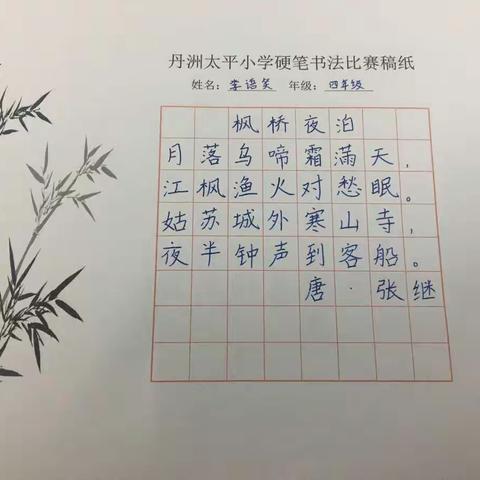 丹洲太平小学硬笔书法比赛稿纸
姓名：李语笑 年级：四年级
枫桥夜泊
月落乌啼霜满天，
江枫渔火对愁眠。
姑苏城外寒山寺，
夜半钟声到客船。
唐·张继